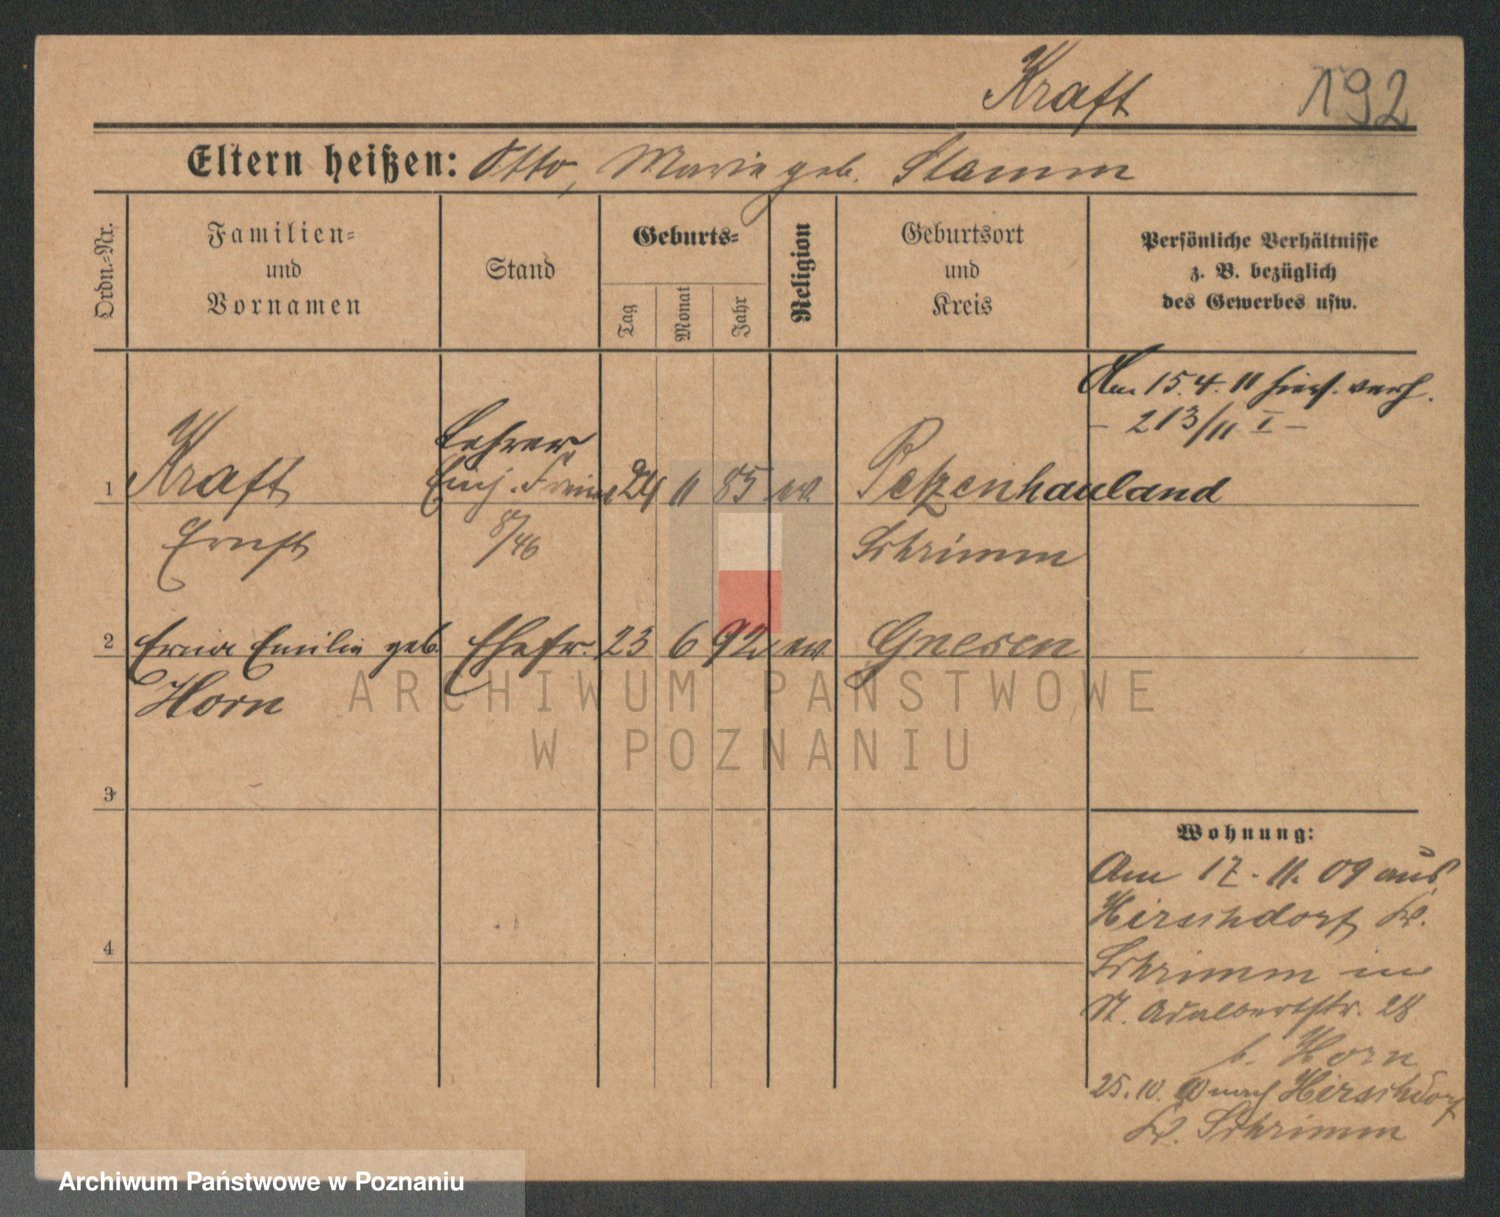 Kraft 192
Eltern heißen: Otto, Marie geb. Stamm
Ordn.-Nr.
Familien-
und
Vornamen
Stand
Geburts-
Tag
Monat
Jahr
Religion
Geburtsort
und
Kreis
Persönliche Verhältnisse
z. B. bezüglich
des Gewerbes usw.
Am 15.4.11 verh.
- 213/11 I -
Lehrer
1 Kraft Einj. 24 11 85 ev. Petzenhauland
Ernst 8/46 Schrimm
2 Erna Emilie geb. Ehefr. 23 6 92 ev. Gnesen
Horn
ARCHIWUM PAŃSTWOWE
W POZNANIU
3
Wohnung:
Am 17.11.09 aus
Hirschdorf Kr.
4
Schrimm in
St. Adalbertstr. 28
b. Horn
25.10.10 nach Hirschdorf
Kr. Schrimm
Archiwum Państwowe w Poznaniu